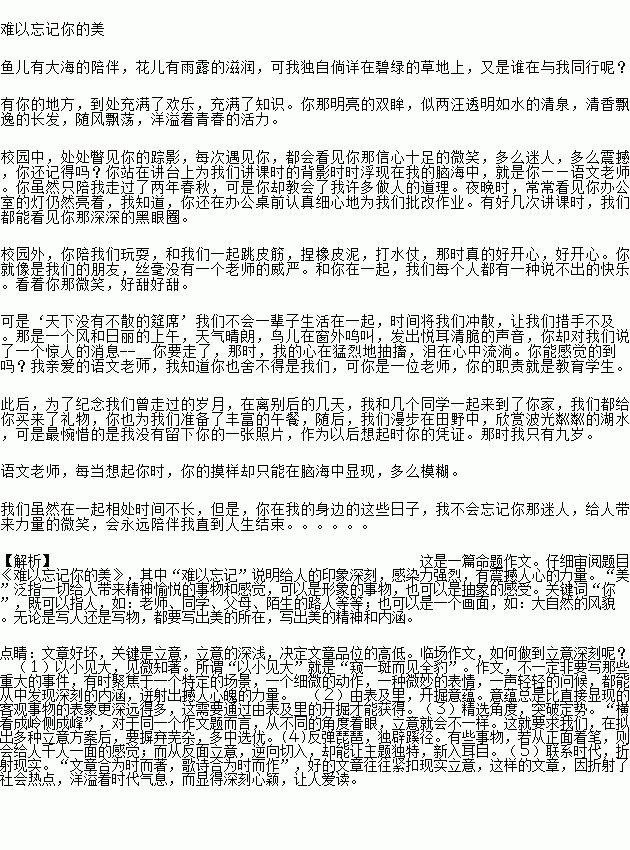 难以忘记你的美
鱼儿有大海的陪伴，花儿有雨露的滋润，可我独自倘详在碧绿的草地上，又是谁在与我同行呢？
有你的地方，到处充满了欢乐，充满了知识。你那明亮的双眸，似两汪透明如水的清泉，清香飘
逸的长发，随风飘荡，洋溢着青春的活力。
校园中，处处瞥见你的踪影，每次遇见你，都会看见你那信心十足的微笑，多么迷人，多么震撼
，你还记得吗？你站在讲台上为我们讲课时的背影时时浮现在我的脑海中，就是你——语文老师
。你虽然只陪我走过了两年春秋，可是你却教会了我许多做人的道理。夜晚时，常常看见你办公
室的灯仍然亮着，我知道，你还在办公桌前认真细心地为我们批改作业。有好几次讲课时，我们
都能看见你那深深的黑眼圈。
校园外，你陪我们玩耍，和我们一起跳皮筋，捏橡皮泥，打水仗，那时真的好开心，好开心。你
就像是我们的朋友，丝毫没有一个老师的威严。和你在一起，我们每个人都有一种说不出的快乐
。看着你那微笑，好甜好甜。
可是‘天下没有不散的筵席’我们不会一辈子生活在一起，时间将我们冲散，让我们措手不及
。那是一个风和日丽的上午，天气晴朗，鸟儿在窗外鸣叫，发出悦耳清脆的声音，你却对我们说
了一个惊人的消息--__你要走了，那时，我的心在猛烈地抽搐，泪在心中流淌。你能感觉的到
吗？我亲爱的语文老师，我知道你也舍不得是我们，可你是一位老师，你的职责就是教育学生。
此后，为了纪念我们曾走过的岁月，在离别后的几天，我和几个同学一起来到了你家，我们都给
你买来了礼物，你也为我们准备了丰富的午餐，随后，我们漫步在田野中，欣赏波光粼粼的湖水
，可是最惋惜的是我没有留下你的一张照片，作为以后想起时你的凭证。那时我只有九岁。
语文老师，每当想起你时，你的摸样却只能在脑海中显现，多么模糊。
我们虽然在一起相处时间不长，但是，你在我的身边的这些日子，我不会忘记你那迷人，给人带
来力量的微笑，会永远陪伴我直到人生结束。。。。。。
【解析】 这是一篇命题作文。仔细审阅题目
《难以忘记你的美》，其中“难以忘记”说明给人的印象深刻，感染力强烈，有震撼人心的力量。“美
”泛指一切给人带来精神愉悦的事物和感觉，可以是形象的事物，也可以是抽象的感受。关键词“你
”，既可以指人，如：老师、同学、父母、陌生的路人等等；也可以是一个画面，如：大自然的风貌
。无论是写人还是写物，都要写出美的所在，写出美的精神和内涵。
点睛：文章好坏，关键是立意，立意的深浅，决定文章品位的高低。临场作文，如何做到立意深刻呢？
（1）以小见大，见微知著。所谓“以小见大”就是“窥一斑而见全豹”。作文，不一定非要写那些
重大的事件，有时聚焦于一个特定的场景，一个细微的动作，一种微妙的表情，一声轻轻的问候，都能
从中发现深刻的内涵，迸射出撼人心魄的力量。 （2）由表及里，开掘意蕴。意蕴总是比直接显现的
客观事物的表象更深远得多，这需要通过由表及里的开掘才能获得。（3）精选角度，突破定势。“横
看成岭侧成峰”，对于同一个作文题而言，从不同的角度着眼，立意就会不一样。这就要求我们，在拟
出多种立意方案后，要摒弃芜杂，多中选优。（4)反弹琵琶，独辟蹊径。有些事物，若从正面着笔，则
会给人千人一面的感觉；而从反面立意，逆向切入，却能让主题独特，新人耳目。（5）联系时代，折
射现实。“文章合为时而著，歌诗合为时而作”，好的文章往往紧扣现实立意，这样的文章，因折射了
社会热点，洋溢着时代气息，而显得深刻心颖，让人爱读。